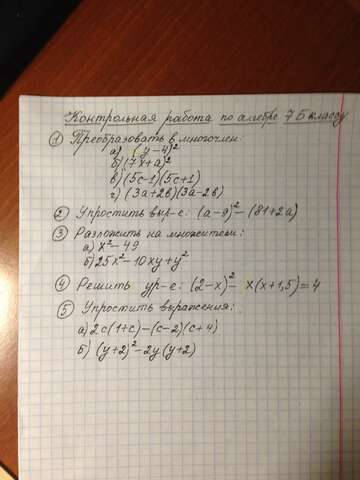 Контрольная работа по алгебре 7Б классу
① Преобразовать в многочлен:
а) (y-4)²
б) (7x+a)²
в) (5c-1)(5c+1)
г) (3a+2b)(3a-2b)
② Упростить выр-е: (a-9)²-(81+2a)
③ Разложить на множители:
а) x²-49
б) 25x²-10xy+y²
④ Решить ур-е: (2-x)²- x(x+1,5)=4
⑤ Упростить выражения:
а) 2c(1+c)-(c-2)(c+4)
б) (y+2)²-2y(y+2)